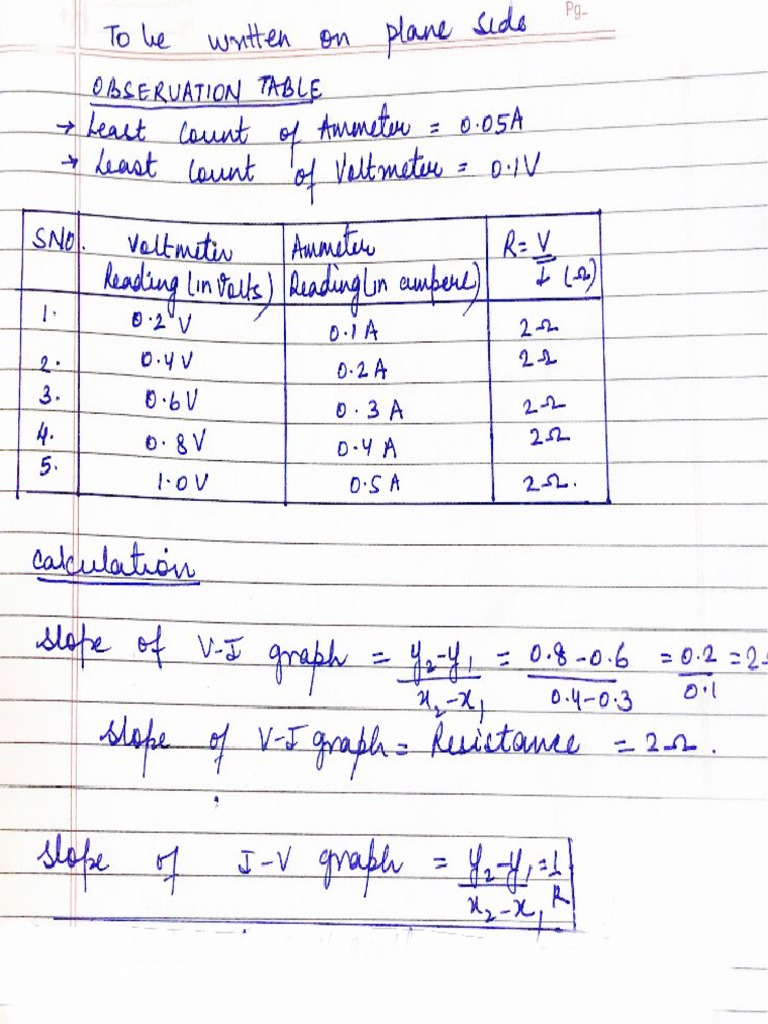 Pg_
To be written on plane side
OBSERVATION TABLE
→ Least count of Ammeter = 0.05A
→ Least count of Voltmeter = 0.1V
SNO. Voltmeter Reading (in Volts) Ammeter Reading (in ampere) R = V/I (Ω)
1. 0.2 V 0.1 A 2Ω
2. 0.4 V 0.2 A 2Ω
3. 0.6 V 0.3 A 2Ω
4. 0.8 V 0.4 A 2Ω
5. 1.0 V 0.5 A 2Ω.
Calculation
Slope of V-I graph = y₂-y₁/x₂-x₁ = 0.8-0.6/0.4-0.3 = 0.2/0.1 = 2
Slope of V-I graph = Resistance = 2Ω.
Slope of I-V graph = y₂-y₁/x₂-x₁ = 1/R